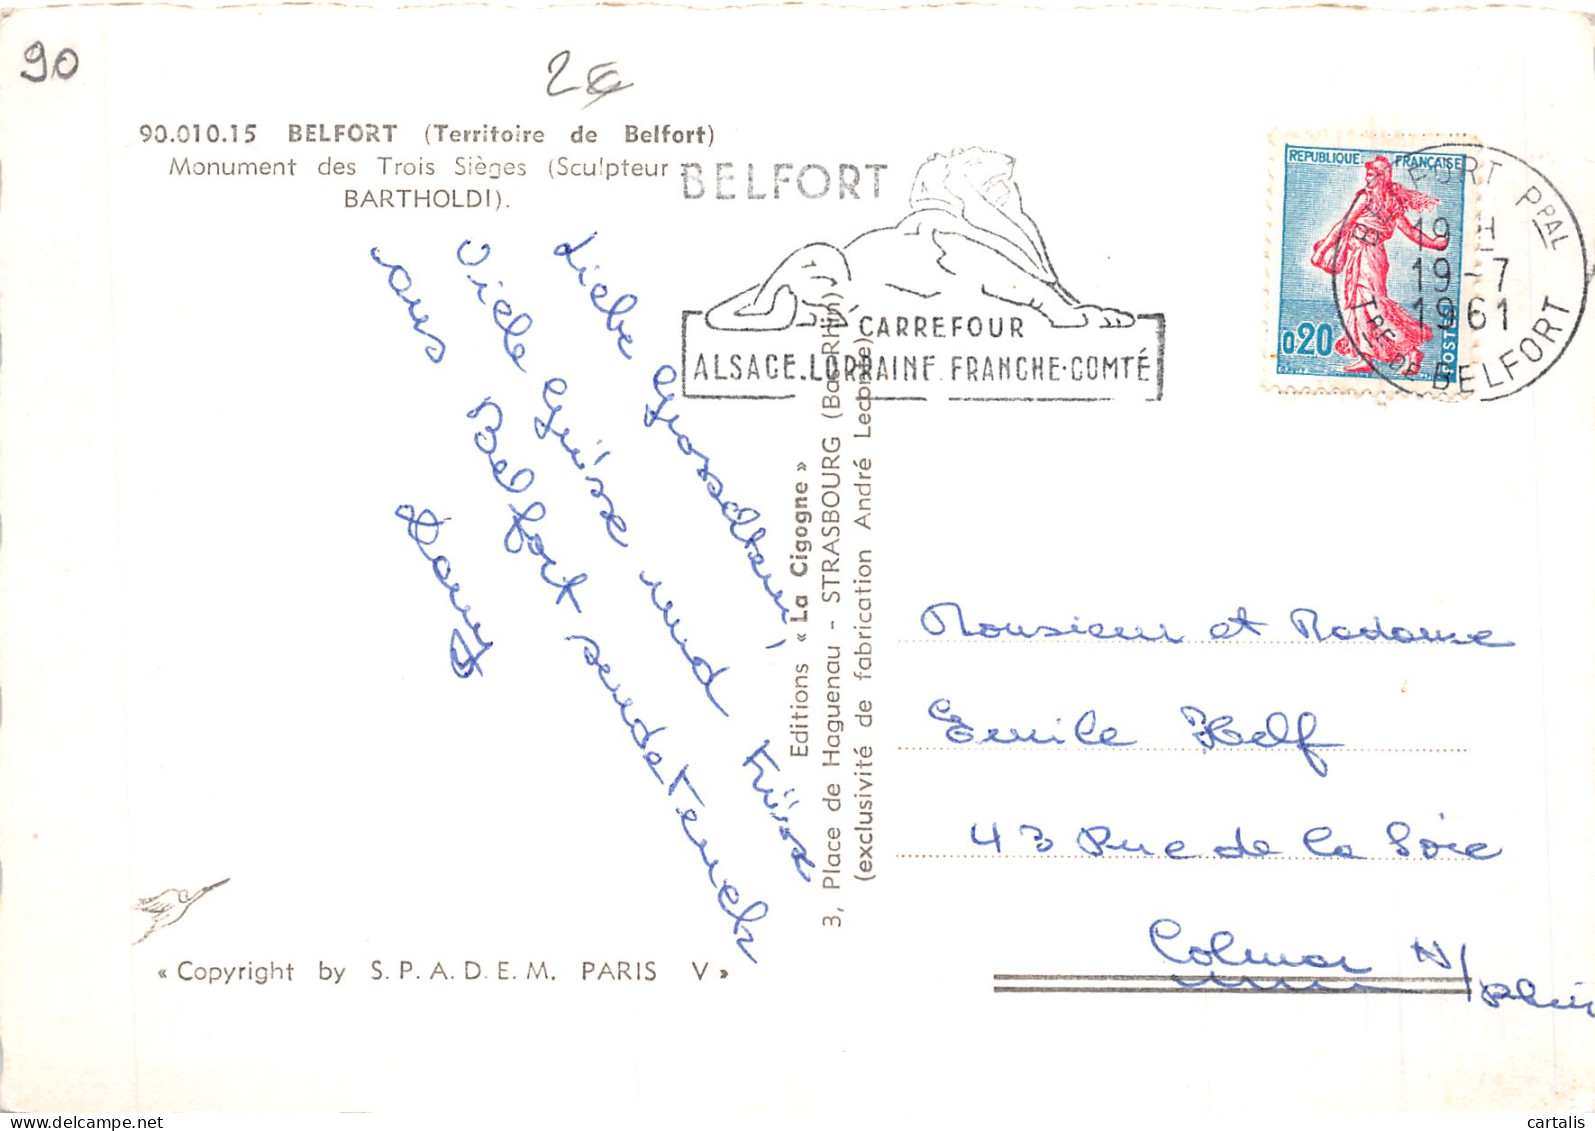 90
2€
90.010.15 BELFORT (Territoire de Belfort)
Monument des Trois Sièges (Sculpteur
BARTHOLDI).
BELFORT
CARREFOUR
ALSACE.LORRAINE.FRANCHE-COMTÉ
REPUBLIQUE FRANÇAISE
0,20
POSTES
BELFORT PPAL
19 H
19-7
1961
TRE DE BELFORT
Liebe Grosseltern!
Viele Grüsse und Küsse
aus Belfort sendet euch
Dany
Editions « La Cigogne »
3, Place de Haguenau - STRASBOURG (Bas-Rhin)
(exclusivité de fabrication André Leconte)
Monsieur et Madame
Emile Helf
43 Rue de la Soie
Colmar H/Rhin
« Copyright by S.P.A.D.E.M. PARIS V »
cartalis